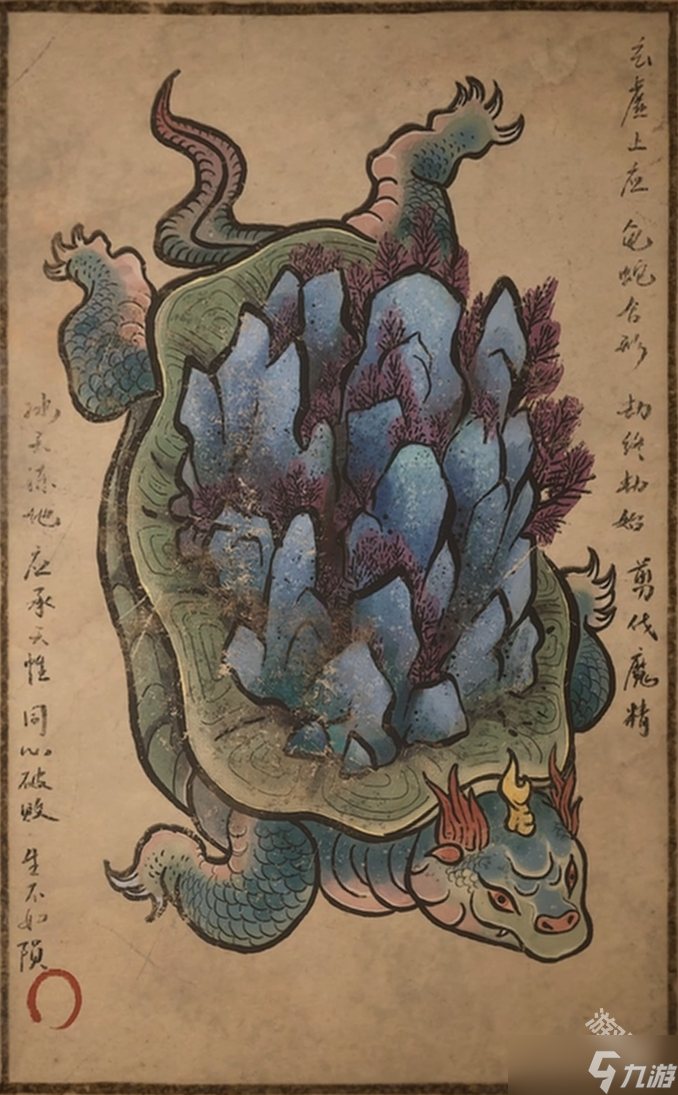 玄虚上应 龟蛇合形 劫终劫始 剪伐魔精
冰天冻地 应承天性 同心破败 生不如陨
九游